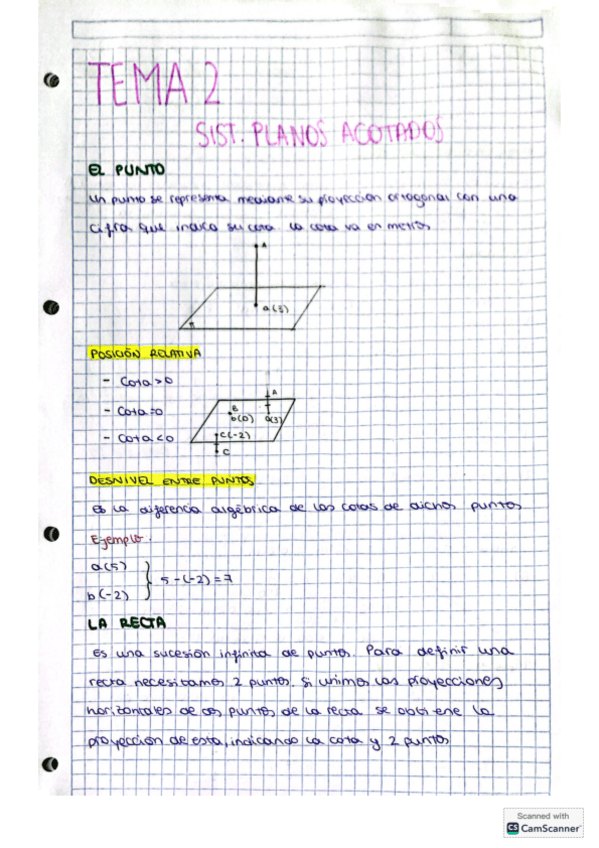 TEMA 2
SIST. PLANOS ACOTADOS
EL PUNTO
Un punto se representa mediante su proyección ortogonal con una
cifra que indica su cota. La cota va en metros
A
a(3)
π
POSICIÓN RELATIVA
- Cota > 0
- Cota = 0
- Cota < 0
A
B
b(0) a(3)
c(-2)
C
DESNIVEL ENTRE PUNTOS
es la diferencia algébrica de las cotas de dichos puntos
Ejemplo:
a(5)
b(-2)
5-(-2)=7
LA RECTA
Es una sucesión infinita de puntos. Para definir una
recta necesitamos 2 puntos. Si unimos las proyecciones
horizontales de dos puntos de la recta se obtiene la
proyección de esta, indicando la cota y 2 puntos
Scanned with
CS CamScanner